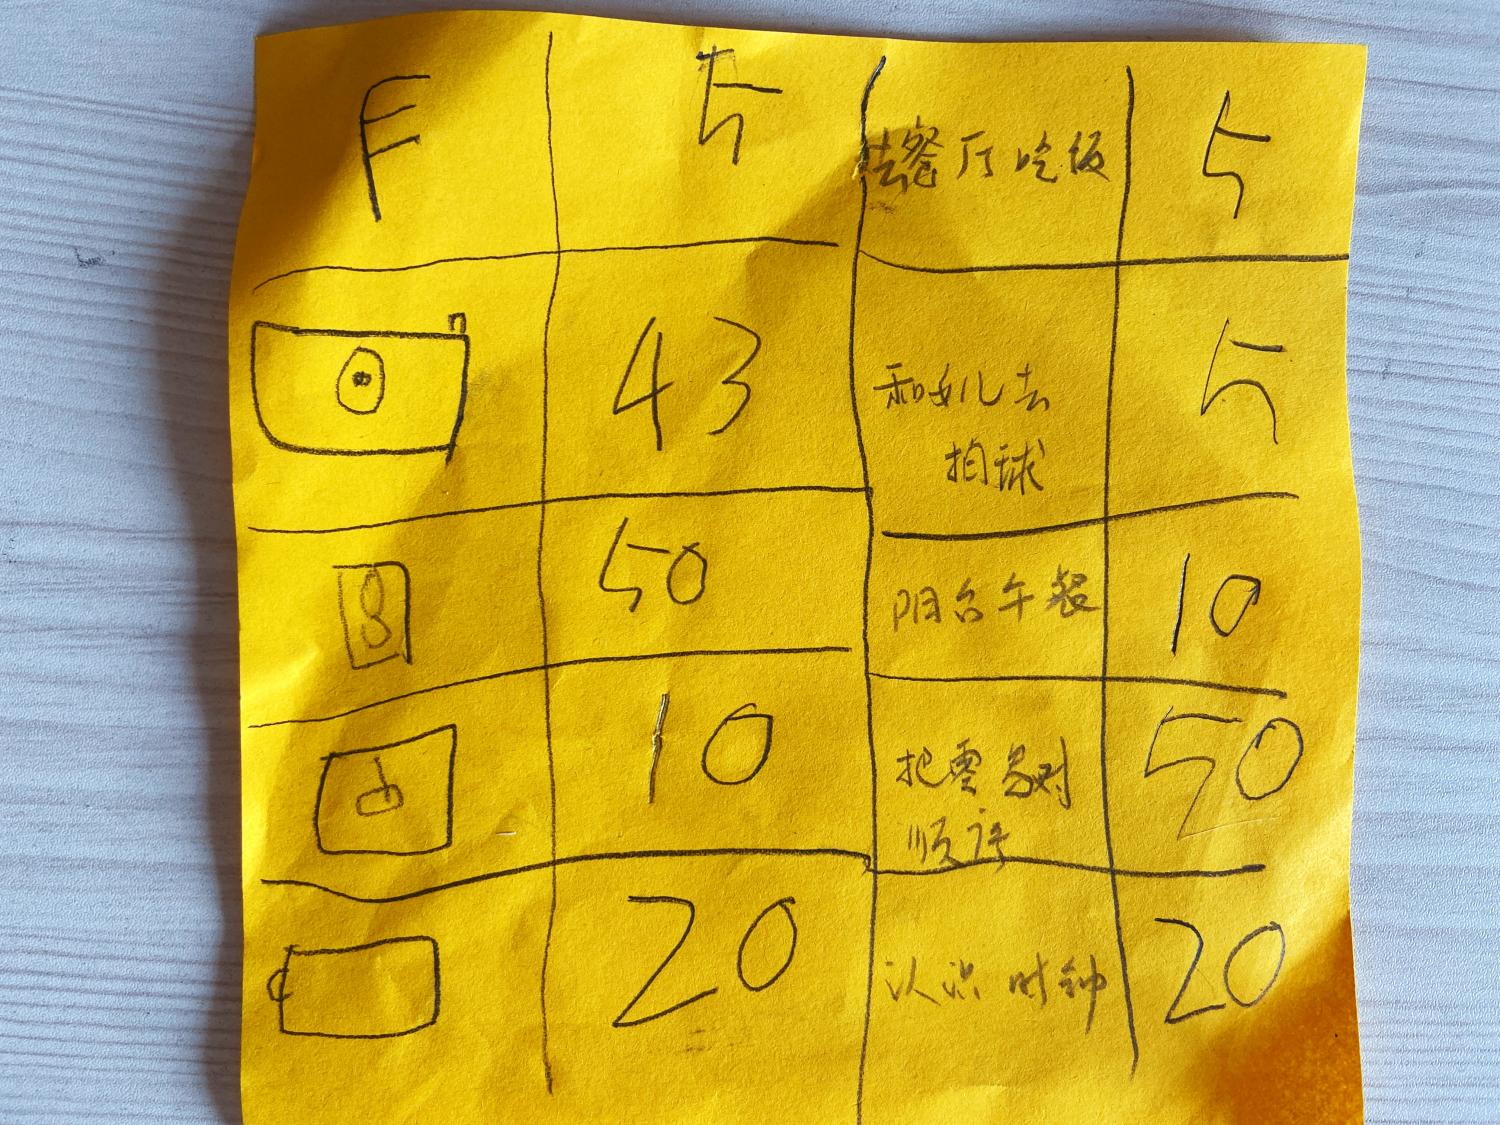 F 5 去餐厅吃饭 5
43 和女儿去 5
拍球
50 阳台午餐 10
10 把零
顺序 50
20 认识时钟 20